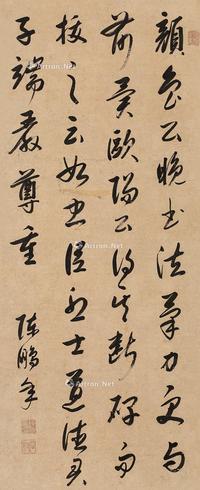 顏魯公晚書法筆力更与
前異歐陽公得其斷碑而
跋之云如忠臣烈士道德君
子端嚴尊重
陳鵬年
Artron.Net